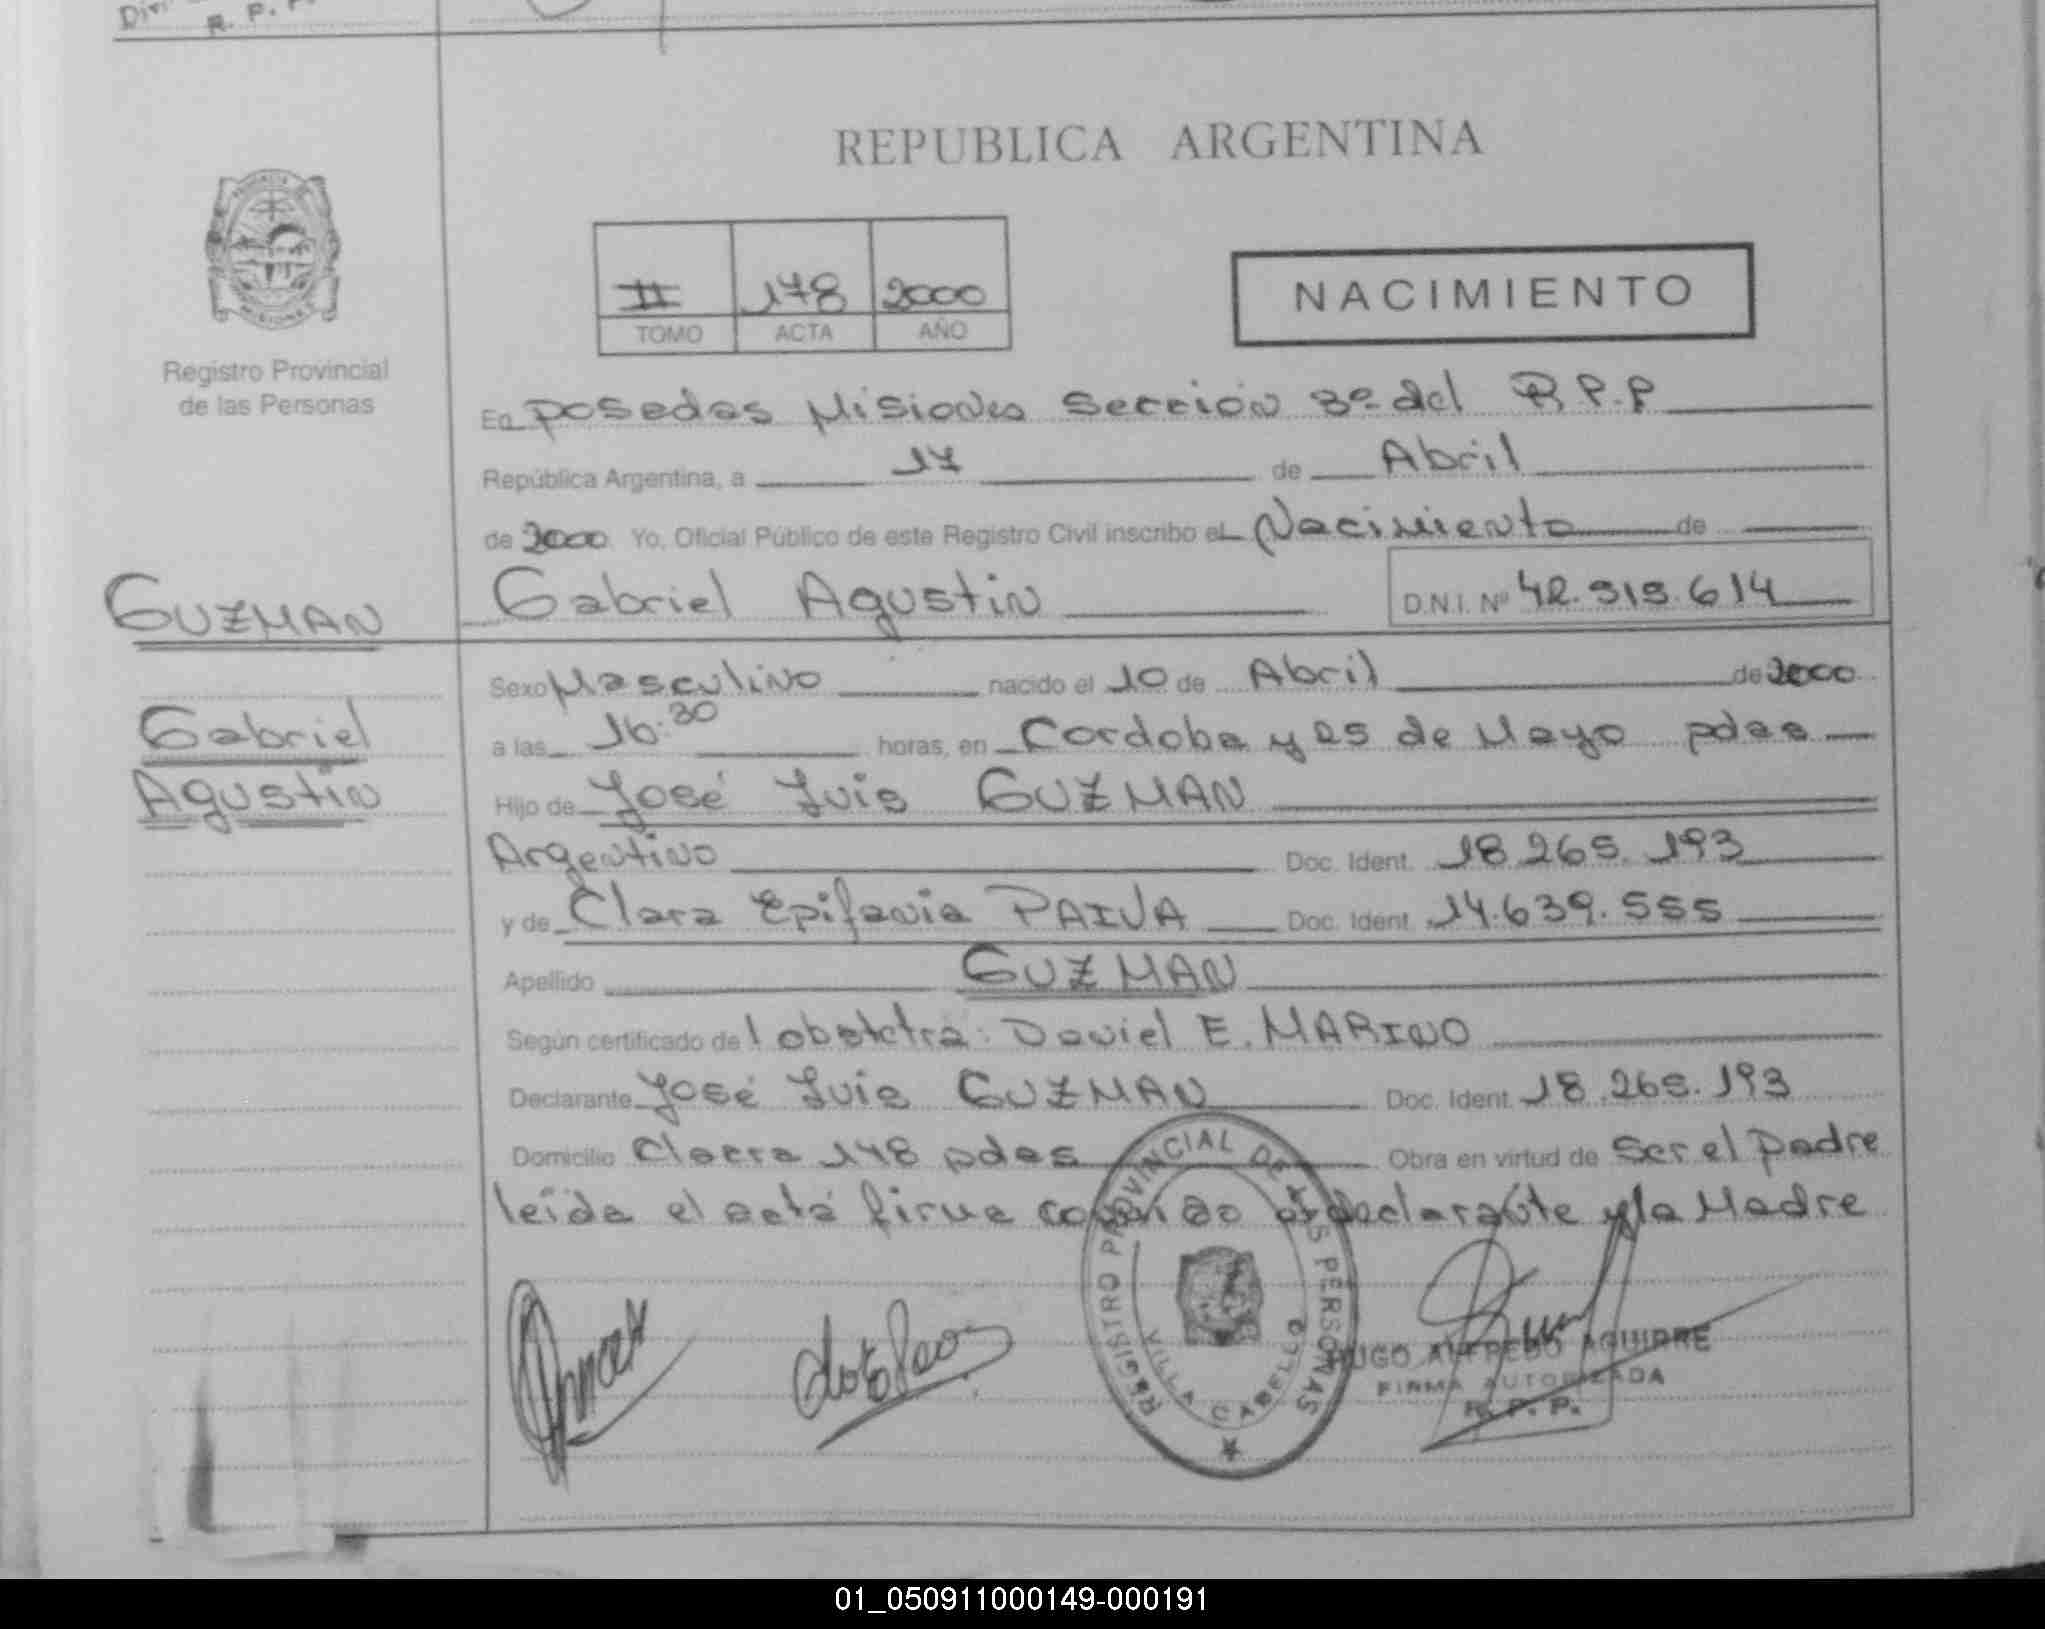 R. P. P.
REPUBLICA ARGENTINA
II 178 2000
TOMO ACTA AÑO
NACIMIENTO
Registro Provincial
de las Personas
En posadas Misiones Sección 3º del R.P.P
República Argentina, a 17 de Abril
de 2000 Yo, Oficial Público de este Registro Civil inscribo el Nacimiento de
Gabriel Agustin D.N.I. Nº 42.515.614
GUZMAN
Gabriel
Agustin
Sexo Masculino nacido el 10 de Abril de 2000
a las 16:30 horas, en Cordoba y 25 de Mayo pdas
Hijo de José Luis GUZMAN
Argentino Doc. Ident. 18.265.193
y de Clara Epifania PAIVA Doc. Ident. 14.639.555
Apellido GUZMAN
Según certificado de l obstctra: Daniel E. MARINO
Declarante José Luis GUZMAN Doc. Ident. 18.265.193
Domicilio 148 pdas Obra en virtud de Ser el Padre
leída el acta firma conmigo el declarante y la Madre
REGISTRO PROVINCIAL DE LAS PERSONAS
VILLA CABELLO
HUGO ALFREDO AGUIRRE
FIRMA AUTORIZADA
R. P. P.
01_050911000149-000191